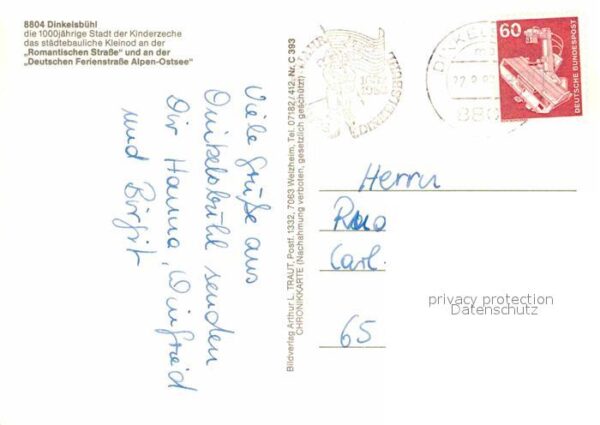 8804 Dinkelsbühl
die 1000jährige Stadt der Kinderzeche
das städtebauliche Kleinod an der
„Romantischen Straße" und an der
„Deutschen Ferienstraße Alpen-Ostsee"
Viele Grüße aus
Dinkelsbühl senden
Dir Hanna, Winfried
und Birgit
Bildverlag Arthur L. TRAUT, Postf. 1332, 7063 Welzheim, Tel. 07182 / 412, Nr. C 393
CHRONIKKARTE (Nachahmung verboten, gesetzlich geschützt)
DINKELSBÜHL
DINKELS
22.9.8
880
60
DEUTSCHE BUNDESPOST
Herrn
Carl.
65
privacy protection
Datenschutz